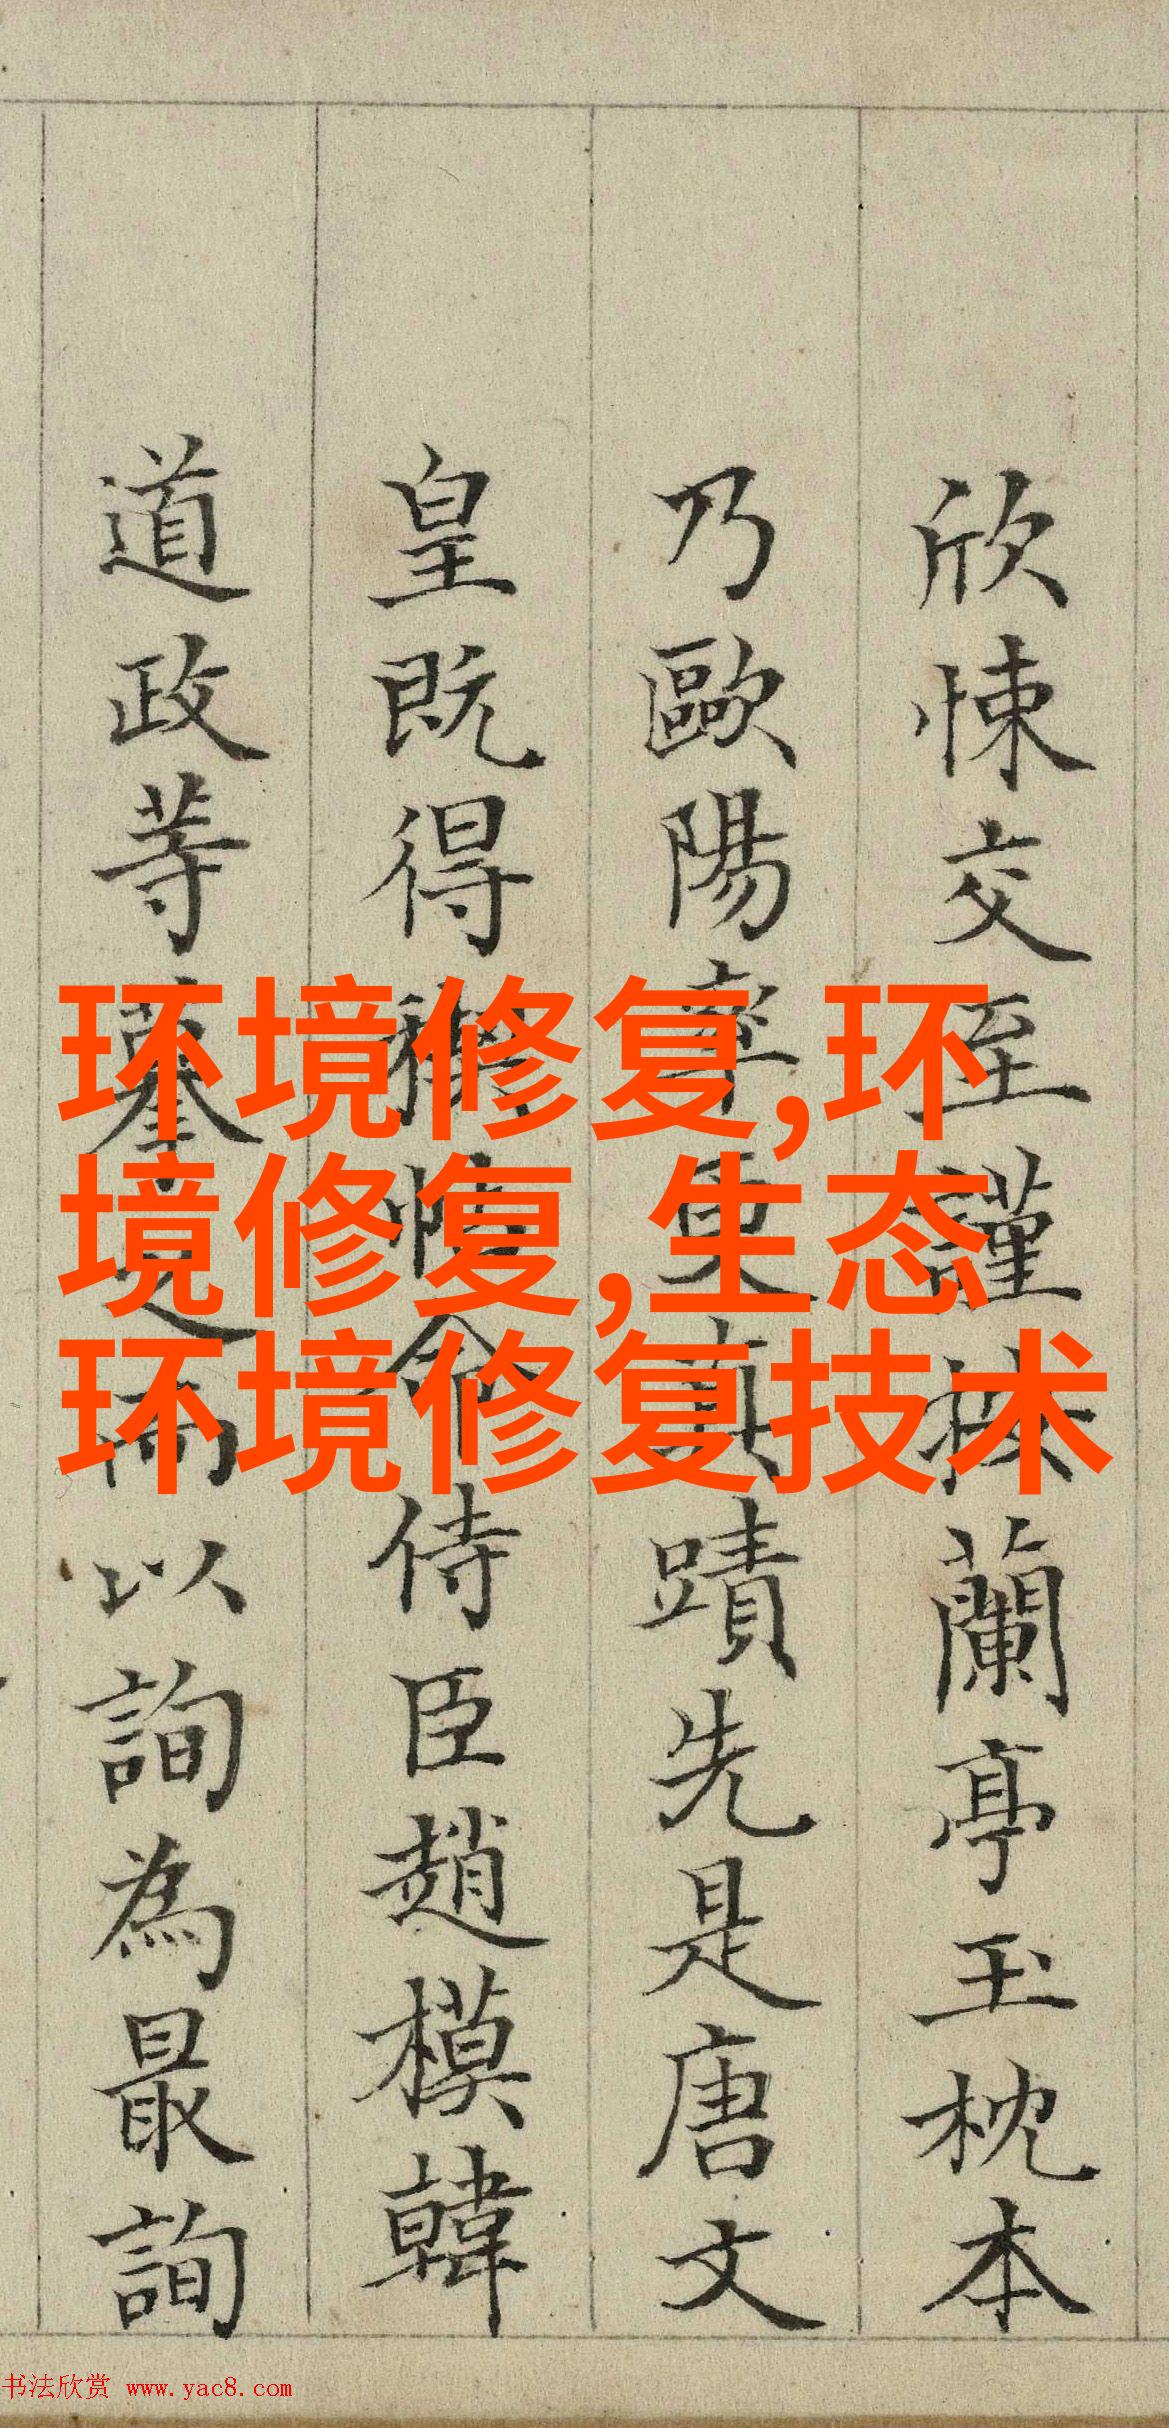 欣悚交至謹按蘭亭玉枕本
乃歐陽率更真蹟先是唐文
皇既得禊帖命侍臣趙模韓
道政等摹之而以詢為最詢
环境修复,环
境修复,生态
环境修复技术
书法欣赏 www.yac8.com